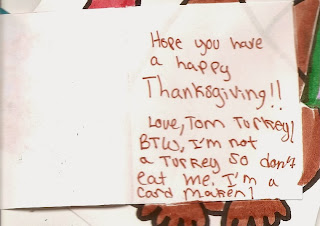 Hope you have
a happy
Thanksgiving!!
Love, Tom Turkey!
BTW, I'm not
a Turkey so don't
eat me. I'm a
card maker!